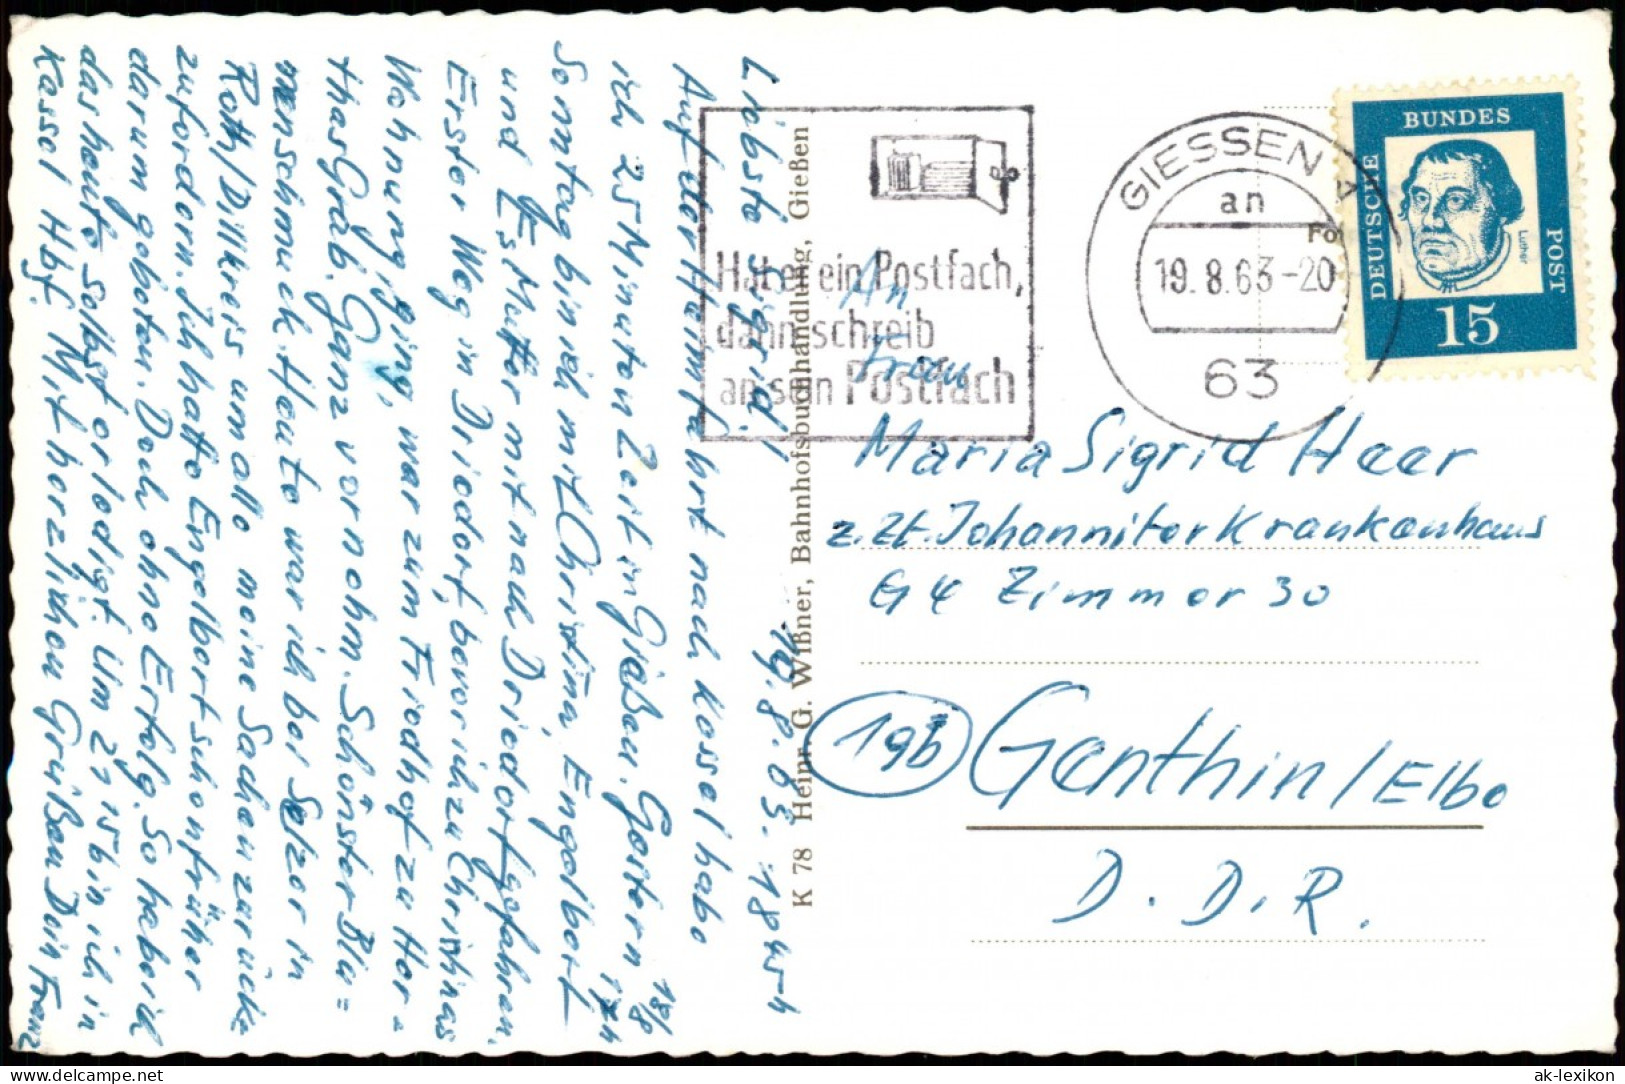 Liebste Sigrid! 19.8.63. 18 45 h
Auf der Heimfahrt nach Kassel habe
ich 25 Minuten Zeit in Gießen. Gestern 18/8
Sonntag bin ich mit Christina, Engelbert 17 h
und Es. Mutter mit nach Driedorf gefahren.
Erster Weg in Driedorf, bevor ich zu Christinas
Wohnung ging, war zum Friedhof zu Her=
thas Grab. Ganz vornehm. Schönster Blu=
menschmuck. Heute war ich bei Selzer in
Roth/Dillkreis um alle meine Sachen zurück
zufordern. Ich hatte Engelbert schon früher
darum gebeten. Doch ohne Erfolg. So habe ich
das heute selbst erledigt. Um 21 15 bin ich in
Kassel Hbf. Mit herzlichen Grüßen Dein Franz
K 78 Heinr. G. Wißner, Bahnhofsbuchhandlung, Gießen
Hat er ein Postfach,
dann schreib
an sein Postfach
GIESSEN
an
19.8.63-20
63
DEUTSCHE
BUNDES
POST
Luther
15
An
Frau
Maria Sigrid Heer
z. Zt. Johanniterkrankenhaus
G4 Zimmer 30
19b Genthin/Elbe
D.D.R.
www.ansichtskarten-lexikon.de
ak-lexikon